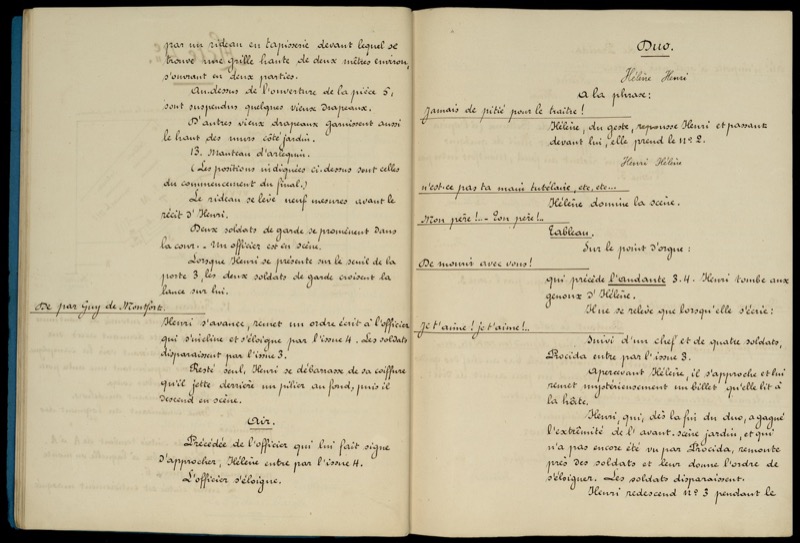 par un rideau en tapisserie devant lequel se
trouve une grille haute de deux mètres environ,
s'ouvrant en deux parties.
Au-dessus de l'ouverture de la pièce 5,
sont suspendus quelques vieux drapeaux.
D'autres vieux drapeaux garnissent aussi
le haut des murs côté jardin.
13. Manteau d'arlequin.
(Les positions indiquées ci-dessus sont celles
du commencement du final.)
Le rideau se lève neuf mesures avant le
récit d'Henri.
Deux soldats de garde se promènent dans
la cour. - Un officier est en scène.
Lorsque Henri se présente sur le seuil de la
porte 3, les deux soldats de garde croisent la
lance sur lui.
De par Guy de Montfort.
Henri s'avance, remet un ordre écrit à l'officier
qui s'incline et s'éloigne par l'issue 4. Les soldats
disparaissent par l'issue 3.
Resté seul, Henri se débarrasse de sa coiffure
qu'il jette derrière un pilier au fond, puis il
descend en scène.
Air.
Précédée de l'officier qui lui fait signe
d'approcher, Hélène entre par l'issue 4.
L'officier s'éloigne.
Duo.
Hélène Henri
A la phrase:
Jamais de pitié pour le traître!
Hélène, du geste, repousse Henri et passant
devant lui, elle prend le nº 2.
Henri Hélène
n'est-ce pas ta main tutélaire, etc, etc...
Hélène domine la scène.
Mon père!.. - Ton père!..
Tableau.
Sur le point d'orgue:
De mourir avec vous!
qui précède l'andante 3.4. Henri tombe aux
genoux d'Hélène.
Il ne se relève que lorsqu'elle s'écrie:
Je t'aime! je t'aime!..
Suivi d'un chef et de quatre soldats,
Procida entre par l'issue 3.
Apercevant Hélène, il s'approche et lui
remet mystérieusement un billet qu'elle lit à
la hâte.
Henri, qui, dès la fin du duo, a gagné
l'extrémité de l'avant-scène jardin, et qui
n'a pas encore été vu par Procida, remonte
près des soldats et leur donne l'ordre de
s'éloigner. Les soldats disparaissent.
Henri redescend nº 3 pendant le